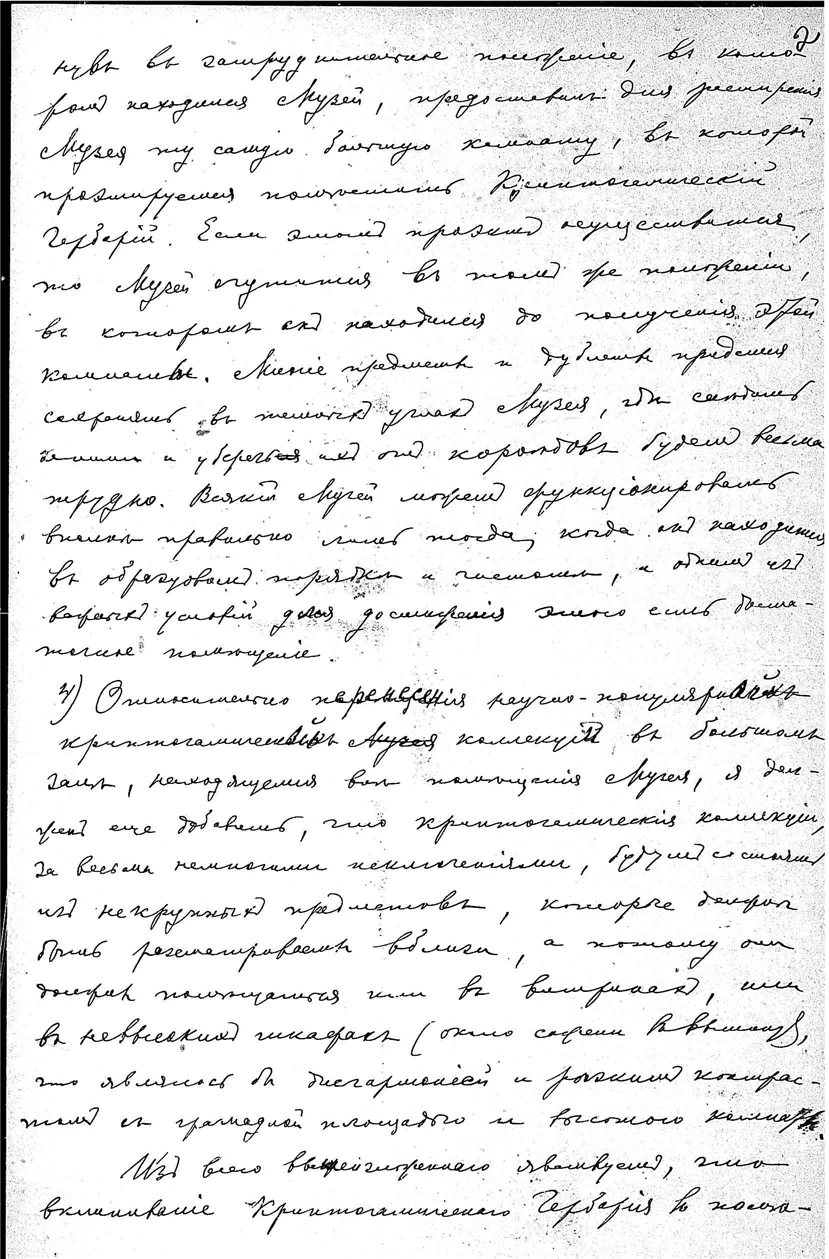 2
нувъ въ затруднительное положеніе, въ кото-
ромъ находился Музей, предоставилъ для расширенія
Музея ту самую большую комнату, въ которой
проэктируется помѣстить Криптогамическій
Гербарій. Если этотъ проэктъ осуществится,
то Музей очутится въ томъ же положеніи,
въ которомъ онъ находился до полученія этой
комнаты. Многіе предметы и дублеты придется
сохранять въ темныхъ углахъ Музея, гдѣ
и уберечь ихъ отъ короѣдовъ будетъ весьма
трудно. Всякій Музей можетъ функціонировать
вполнѣ правильно лишь тогда, когда онъ находится
въ образцовомъ порядкѣ и чистотѣ, а однимъ изъ
важныхъ условій для достиженія этого есть доста-
точное помѣщеніе.
4) Относительно перенесенія научно-популярныхъ
криптогамическихъ Музея коллекцій въ большомъ
залѣ, находящемся внѣ помѣщенія Музея, я дол-
женъ еще добавить, что криптогамическія коллекціи,
за весьма немногими исключеніями, будутъ состоять
изъ некрупныхъ предметовъ, которые должны
быть разсматриваемы вблизи, а потому они
должны помѣщаться или въ витринахъ, или
въ невысокихъ шкафахъ (около сажени въ вышину),
что являлось бы дисгармоніей и рѣзкимъ контрас-
томъ съ громадной площадью и высотою комнаты.
Изъ всего вышеизложеннаго явствуетъ, что
вклиниваніе Криптогамическаго Гербарія въ помѣ-